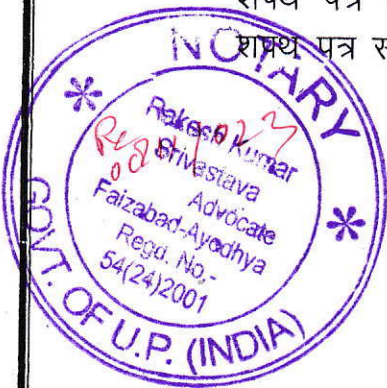 शपथ पत्र
शपथ पत्र
NOTARY
Rakesh Kumar
Srivastava
Advocate
Faizabad-Ayodhya
Regd. No.-
54(24)2001
GOVT. OF U.P. (INDIA)